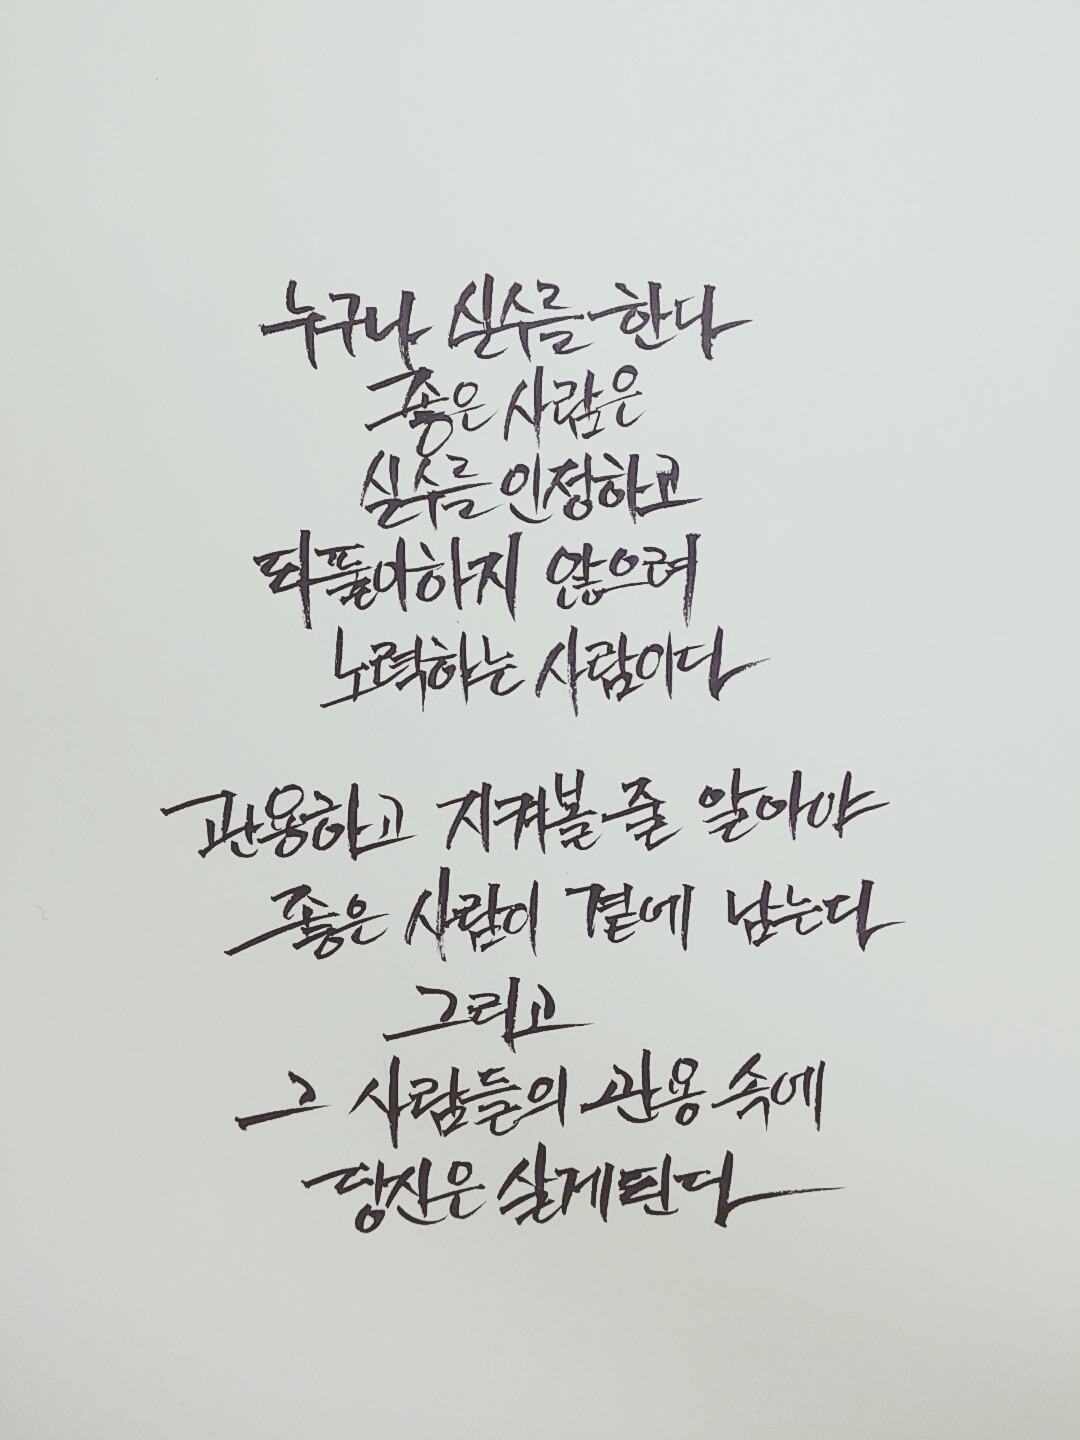 누구나 실수를 한다
좋은 사람은
실수를 인정하고
되풀이하지 않으려
노력하는 사람이다
관용하고 지켜볼 줄 알아야
좋은 사람이 곁에 남는다
그리고
그 사람들의 관용 속에
당신은 살게 된다